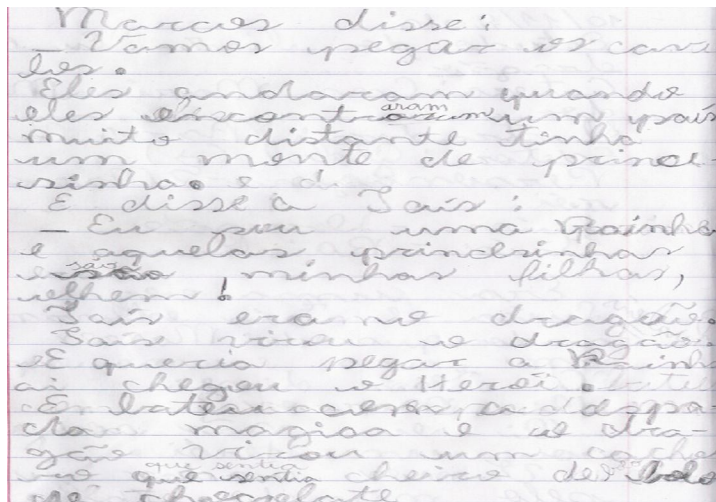 Marcos disse:
– Vamos pegar os cava
los.
Eles andaram quando
eles encontraram um país
muito distante tinha
um monte de prince-
sinha. e di
E disse a Taís:
– Eu sou uma Rainha
e aquelas princesinhas
são minhas filhas,
olhem!
Taís era o dragão.
Taís virou o dragão.
E queria pegar a Rainha
ai chegou o Herói.
E bateu com a espa-
da magica e o dra-
gão virou um cacho
que sentia cheiro de bolo
de chocolate